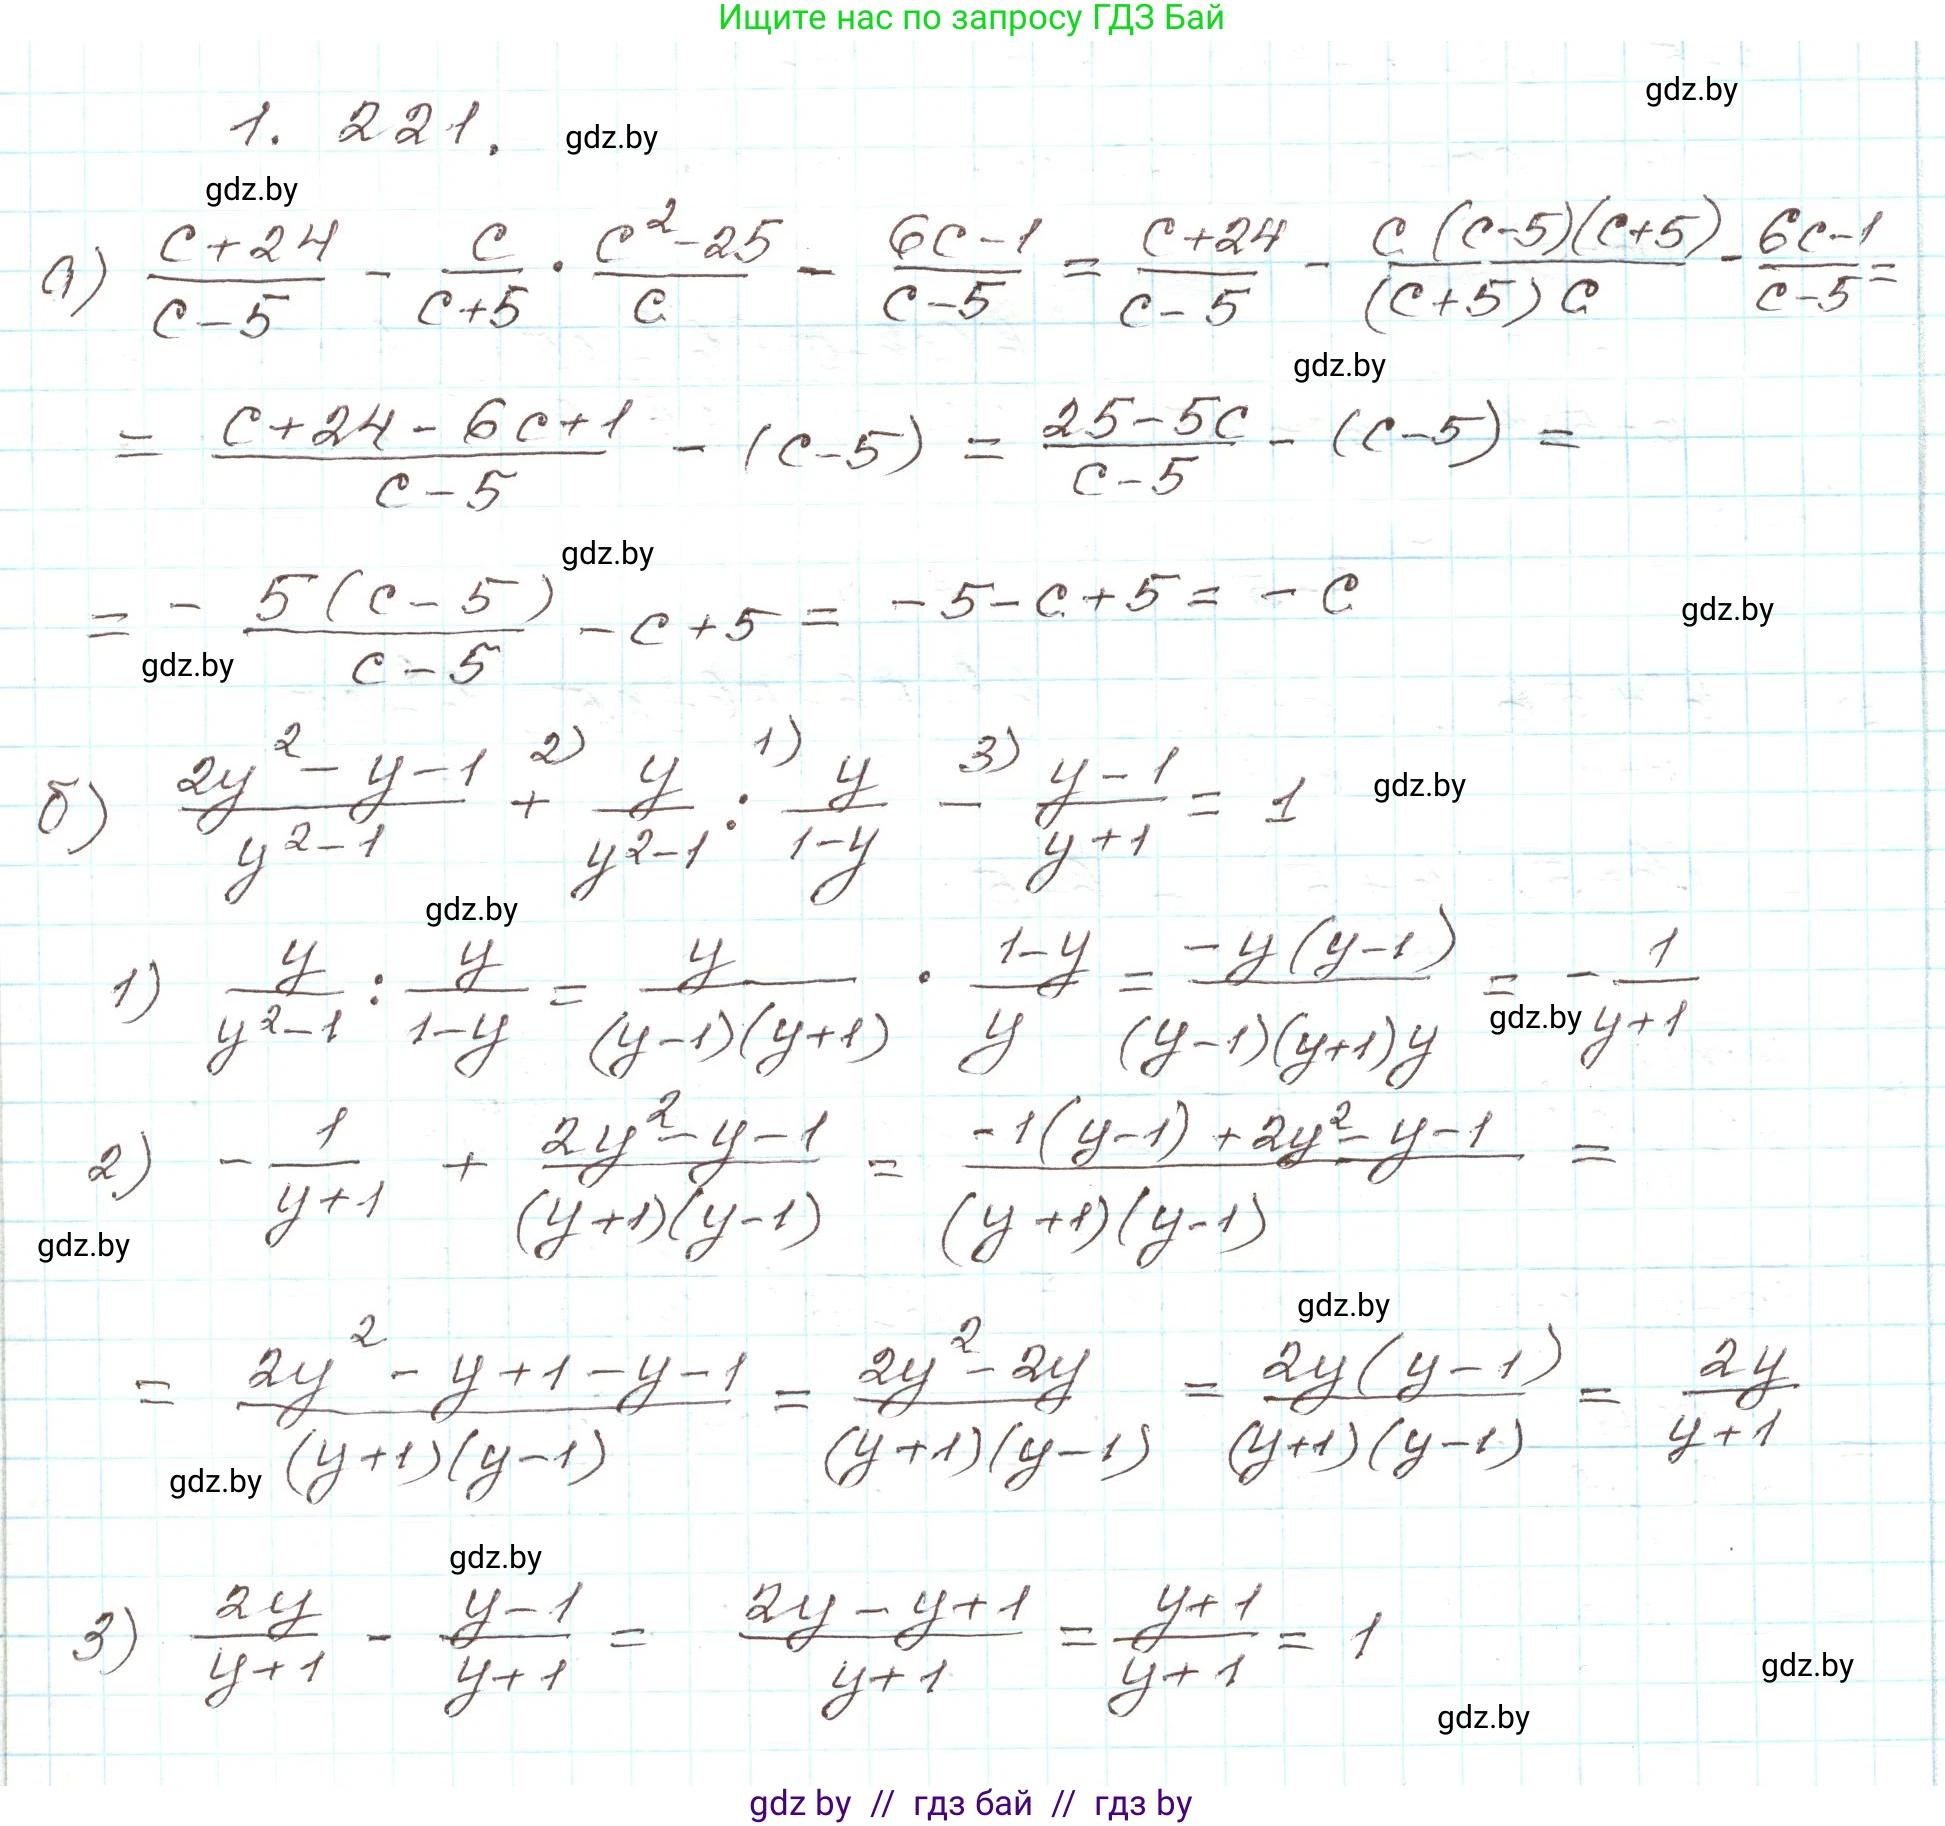 Ищите нас по запросу ГДЗ Бай
gdz.by
1. 221. gdz.by
gdz.by
а) (c+24)/(c-5) - c/(c+5) · (c²-25)/c - (6c-1)/(c-5) = (c+24)/(c-5) - (c(c-5)(c+5))/((c+5)c) - (6c-1)/(c-5) =
gdz.by
= (c+24-6c+1)/(c-5) - (c-5) = (25-5c)/(c-5) - (c-5) =
gdz.by
= - (5(c-5))/(c-5) - c+5 = -5-c+5 = -c
gdz.by
gdz.by
б) (2y²-y-1)/(y²-1) +2) y/(y²-1) :1) y/(1-y) -3) (y-1)/(y+1) = 1 gdz.by
gdz.by
1) y/(y²-1) : y/(1-y) = y/((y-1)(y+1)) · (1-y)/y = (-y(y-1))/((y-1)(y+1)y) = - 1/(y+1)
gdz.by
2) - 1/(y+1) + (2y²-y-1)/((y+1)(y-1)) = (-1(y-1)+2y²-y-1)/((y+1)(y-1)) =
gdz.by
gdz.by
= (2y²-y+1-y-1)/((y+1)(y-1)) = (2y²-2y)/((y+1)(y-1)) = (2y(y-1))/((y+1)(y-1)) = 2y/(y+1)
gdz.by
gdz.by
3) 2y/(y+1) - (y-1)/(y+1) = (2y-y+1)/(y+1) = (y+1)/(y+1) = 1
gdz.by
gdz.by
gdz by // гдз бай // гдз by